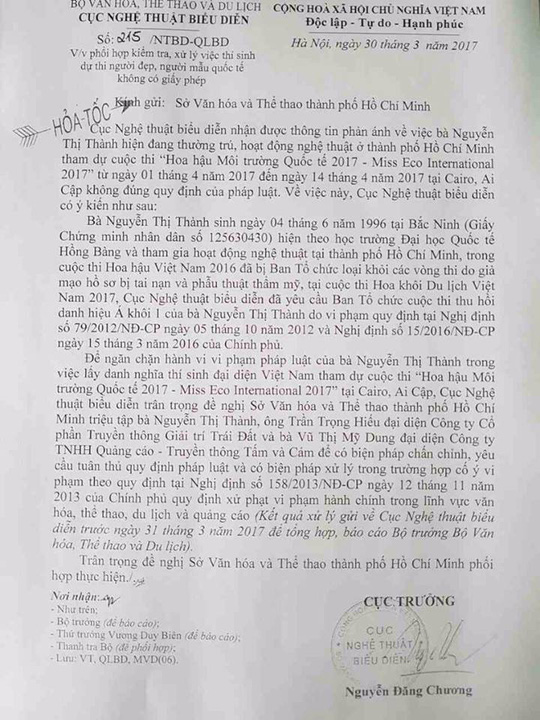 BỘ VĂN HÓA, THỂ THAO VÀ DU LỊCH
CỤC NGHỆ THUẬT BIỂU DIỄN
CỘNG HOÀ XÃ HỘI CHỦ NGHĨA VIỆT NAM
Độc lập - Tự do - Hạnh phúc
Số: 215 /NTBD-QLBD
V/v phối hợp kiểm tra, xử lý việc thí sinh
dự thi người đẹp, người mẫu quốc tế
không có giấy phép
Hà Nội, ngày 30 tháng 3 năm 2017
HỎA-TỐC
Kính gửi: Sở Văn hóa và Thể thao thành phố Hồ Chí Minh
Cục Nghệ thuật biểu diễn nhận được thông tin phản ánh về việc bà Nguyễn
Thị Thành hiện đang thường trú, hoạt động nghệ thuật ở thành phố Hồ Chí Minh
tham dự cuộc thi “Hoa hậu Môi trường Quốc tế 2017 - Miss Eco International
2017” từ ngày 01 tháng 4 năm 2017 đến ngày 14 tháng 4 năm 2017 tại Cairo, Ai
Cập không đúng quy định của pháp luật. Về việc này, Cục Nghệ thuật biểu diễn
có ý kiến như sau:
Bà Nguyễn Thị Thành sinh ngày 04 tháng 6 năm 1996 tại Bắc Ninh (Giấy
Chứng minh nhân dân số 125630430) hiện theo học trường Đại học Quốc tế
Hồng Bàng và tham gia hoạt động nghệ thuật tại thành phố Hồ Chí Minh, trong
cuộc thi Hoa hậu Việt Nam 2016 đã bị Ban Tổ chức loại khỏi các vòng thi do giả
mạo hồ sơ bị tai nạn và phẫu thuật thẩm mỹ, tại cuộc thi Hoa khôi Du lịch Việt
Nam 2017, Cục Nghệ thuật biểu diễn đã yêu cầu Ban Tổ chức cuộc thi thu hồi
danh hiệu Á khôi 1 của bà Nguyễn Thị Thành do vi phạm quy định tại Nghị định
số 79/2012/NĐ-CP ngày 05 tháng 10 năm 2012 và Nghị định số 15/2016/NĐ-CP
ngày 15 tháng 3 năm 2016 của Chính phủ.
Để ngăn chặn hành vi vi phạm pháp luật của bà Nguyễn Thị Thành trong
việc lấy danh nghĩa thí sinh đại diện Việt Nam tham dự cuộc thi “Hoa hậu Môi
trường Quốc tế 2017 - Miss Eco International 2017” tại Cairo, Ai Cập, Cục Nghệ
thuật biểu diễn trân trọng đề nghị Sở Văn hóa và Thể thao thành phố Hồ Chí
Minh triệu tập bà Nguyễn Thị Thành, ông Trần Trọng Hiếu đại diện Công ty Cổ
phần Truyền thông Giải trí Trái Đất và bà Vũ Thị Mỹ Dung đại diện Công ty
TNHH Quảng cáo - Truyền thông Tấm và Cám để có biện pháp chấn chỉnh, yêu
cầu tuân thủ quy định pháp luật và có biện pháp xử lý trong trường hợp cố ý vi
phạm theo quy định tại Nghị định số 158/2013/NĐ-CP ngày 12 tháng 11 năm
2013 của Chính phủ quy định xử phạt vi phạm hành chính trong lĩnh vực văn
hóa, thể thao, du lịch và quảng cáo (Kết quả xử lý gửi về Cục Nghệ thuật biểu
diễn trước ngày 31 tháng 3 năm 2017 để tổng hợp, báo cáo Bộ trưởng Bộ Văn
hóa, Thể thao và Du lịch).
Trân trọng đề nghị Sở Văn hóa và Thể thao thành phố Hồ Chí Minh phối
hợp thực hiện./.
Nơi nhận:
- Như trên;
- Bộ trưởng (để báo cáo);
- Thứ trưởng Vương Duy Biên (để báo cáo);
- Thanh tra Bộ (để phối hợp);
- Lưu: VT, QLBD, MVD(06).
CỤC TRƯỞNG
CỤC
NGHỆ THUẬT
BIỂU DIỄN
Nguyễn Đăng Chương